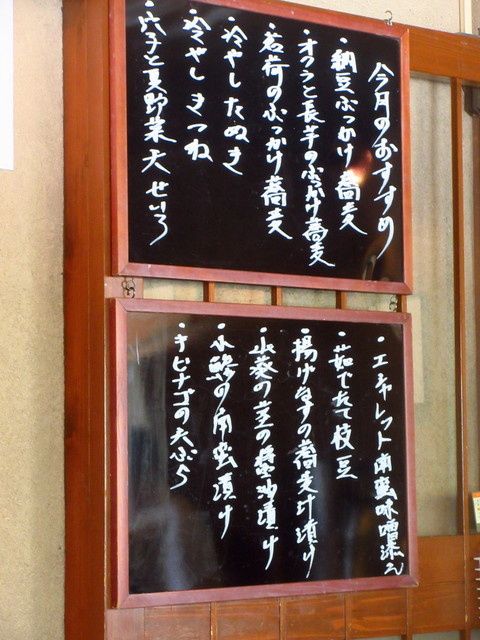 今月のおすすめ
・納豆ぶっかけ蕎麦
・オクラと長芋のぶっかけ蕎麦
・茗荷のぶっかけ蕎麦
・冷やしたぬき
・冷やしきつね
・穴子と夏野菜天せいろ
・エシャレット南蛮味噌添え
・茹でたて枝豆
・揚げなすの蕎麦汁漬け
・山葵の茎の醤油漬け
・小鯵の南蛮漬け
・キビナゴの天ぷら